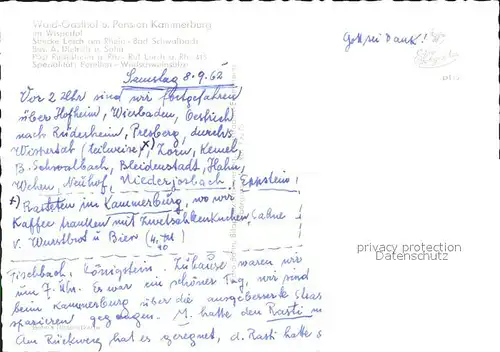 Wald-Gasthof u. Pension Kammerburg
im Wispertal
Strecke Lorch am Rhein - Bad Schwalbach
Bes. A. Dietrich u. Sohn
Post Ransel
Spezialität: Forellen - Wildschweinbraten
Gott sei Dank!
Samstag 8.9.62
Vor 2 Uhr sind wir fortgefahren
über Hofheim, Wiesbaden, Oestrich
nach Rüdesheim, Presberg, durchs
Wispertal (teilweise x), Zorn, Kemel,
B. Schwalbach, Bleidenstadt, Hahn,
Wehen, Neuhof, Niederjosbach, Eppstein,
x) Rasteten im Kammerburg, wo wir
Kaffee tranken mit Zwetschkenkuchen, Sahne
u. Wurstbrot u Bier (4/10)
Fischbach, Königstein. Zuhause waren wir
um 7 Uhr. Es war ein schöner Tag, wir sind
beim Kammerburg über die ausgebesserte Stras
spazieren gegangen. M. hatte den Rasti
Am Rückweg hat es geregnet, d. Rasti hatte
privacy protection
Datenschutz